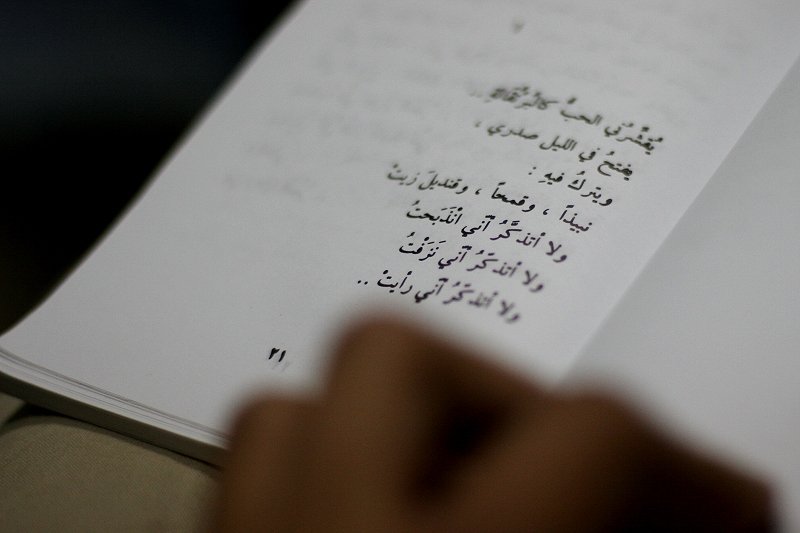 يُقَشِّرُني الحبُّ كالبُرْتُقالةِ ..
يفتحُ في الليل صدري ،
ويتركُ فيهِ :
نبيذاً ، وقمحاً ، وقنديلَ زيتْ
ولا أتذكَّرُ أنّي انْذَبَحتُ
ولا أتذكّرُ أنّي نَزَفْتُ
ولا أتذكّرُ أنّي رأيتْ ..
٢١